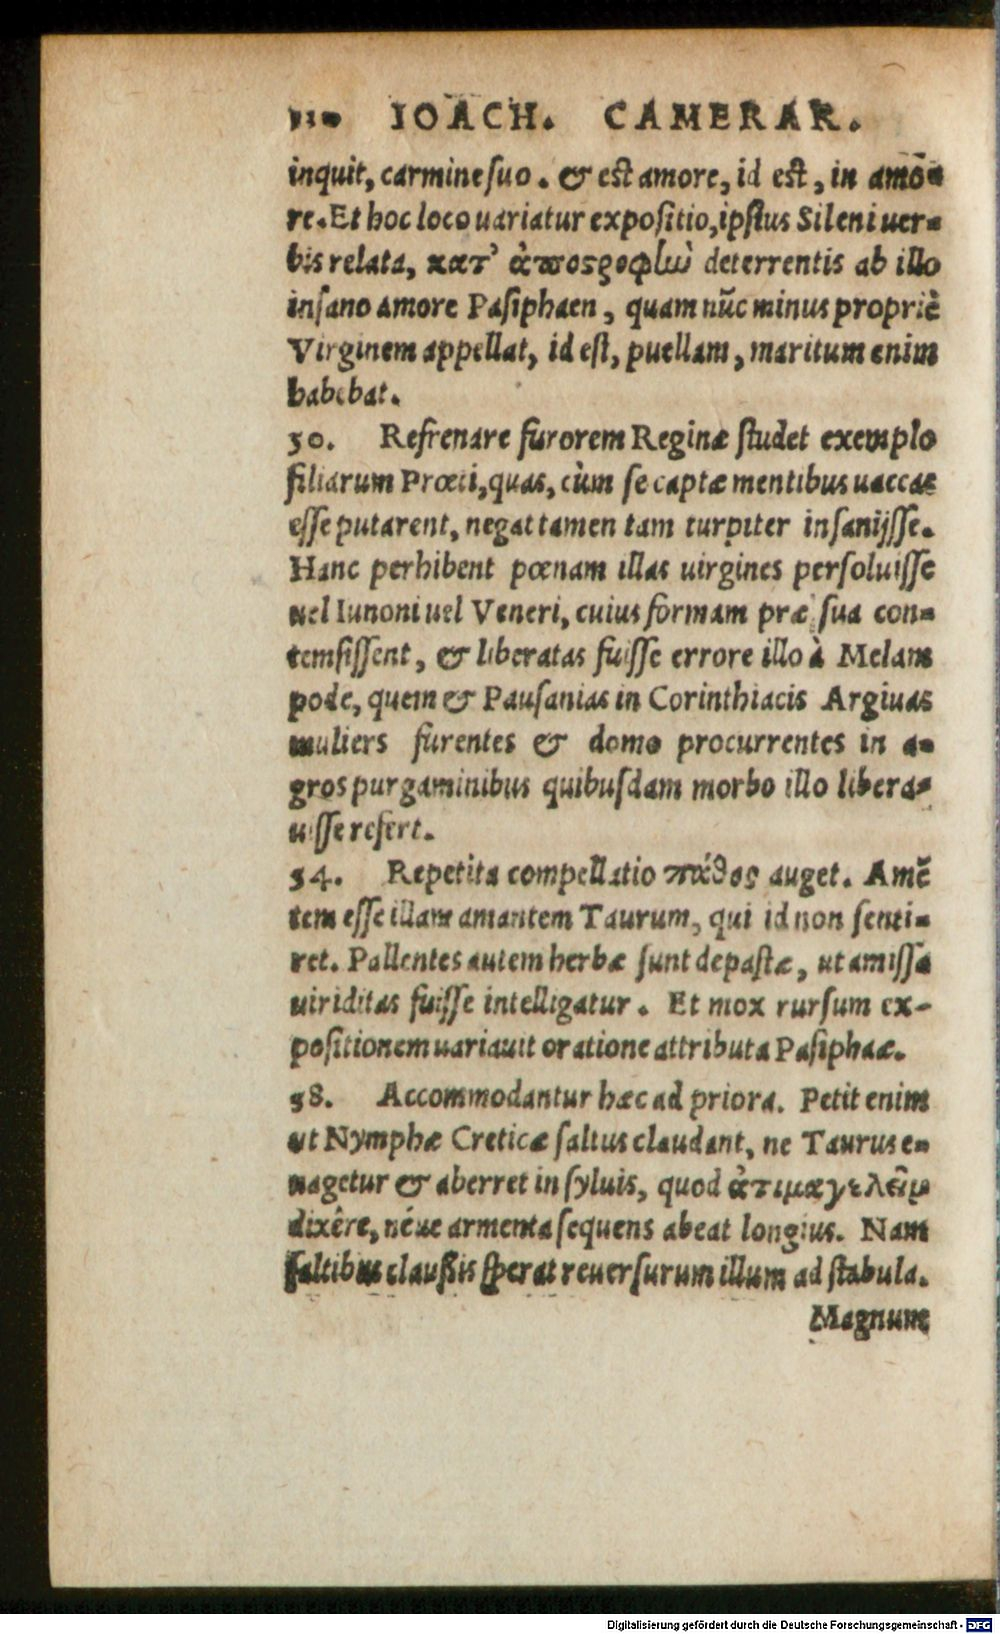 110 IOACH. CAMERAR.
inquit, carmine suo. & est amore, id est, in amo-
re. Et hoc loco uariatur expositio, ipsius Sileni uer-
bis relata, κατ’ ἀποστροφὴν deterrentis ab illo
insano amore Pasiphaen, quam nũc minus propriè
Virginem appellat, id est, puellam, maritum enim
habebat.
50. Refrenare furorem Reginæ studet exemplo
filiarum Prœti, quas, cùm se captæ mentibus uaccas
esse putarent, negat tamen tam turpiter insanijsse.
Hanc perhibent pœnam illas uirgines persoluisse
uel Iunoni uel Veneri, cuius formam præ sua con-
temsissent, & liberatas fuisse errore illo à Melam
pode, quem & Pausanias in Corinthiacis Argiuas
muliers furentes & domo procurrentes in a-
gros purgaminibus quibusdam morbo illo libera-
uisse refert.
54. Repetita compellatio πάθος auget. Amẽ
tem esse illam amantem Taurum, qui id non senti-
ret. Pallentes autem herbæ sunt depastæ, ut amissa
uiriditas fuisse intelligatur. Et mox rursum ex-
positionem uariauit oratione attributa Pasiphaæ.
58. Accommodantur hæc ad priora. Petit enim
ut Nymphæ Creticæ saltus claudant, ne Taurus e-
uagetur & aberret in syluis, quod ἀτιμαγελεῖν
dixêre, néue armenta sequens abeat longius. Nam
saltibus claussis sperat reuersurum illum ad stabula.
Magnum
Digitalisierung gefördert durch die Deutsche Forschungsgemeinschaft - DFG